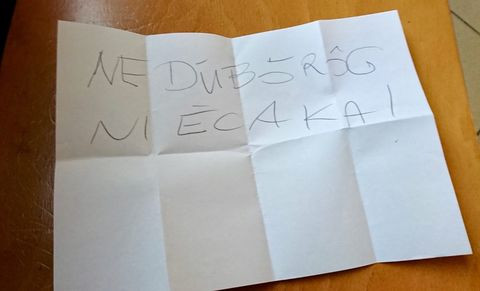 NE DÚBŌRŌG
NI ĒCAKA!